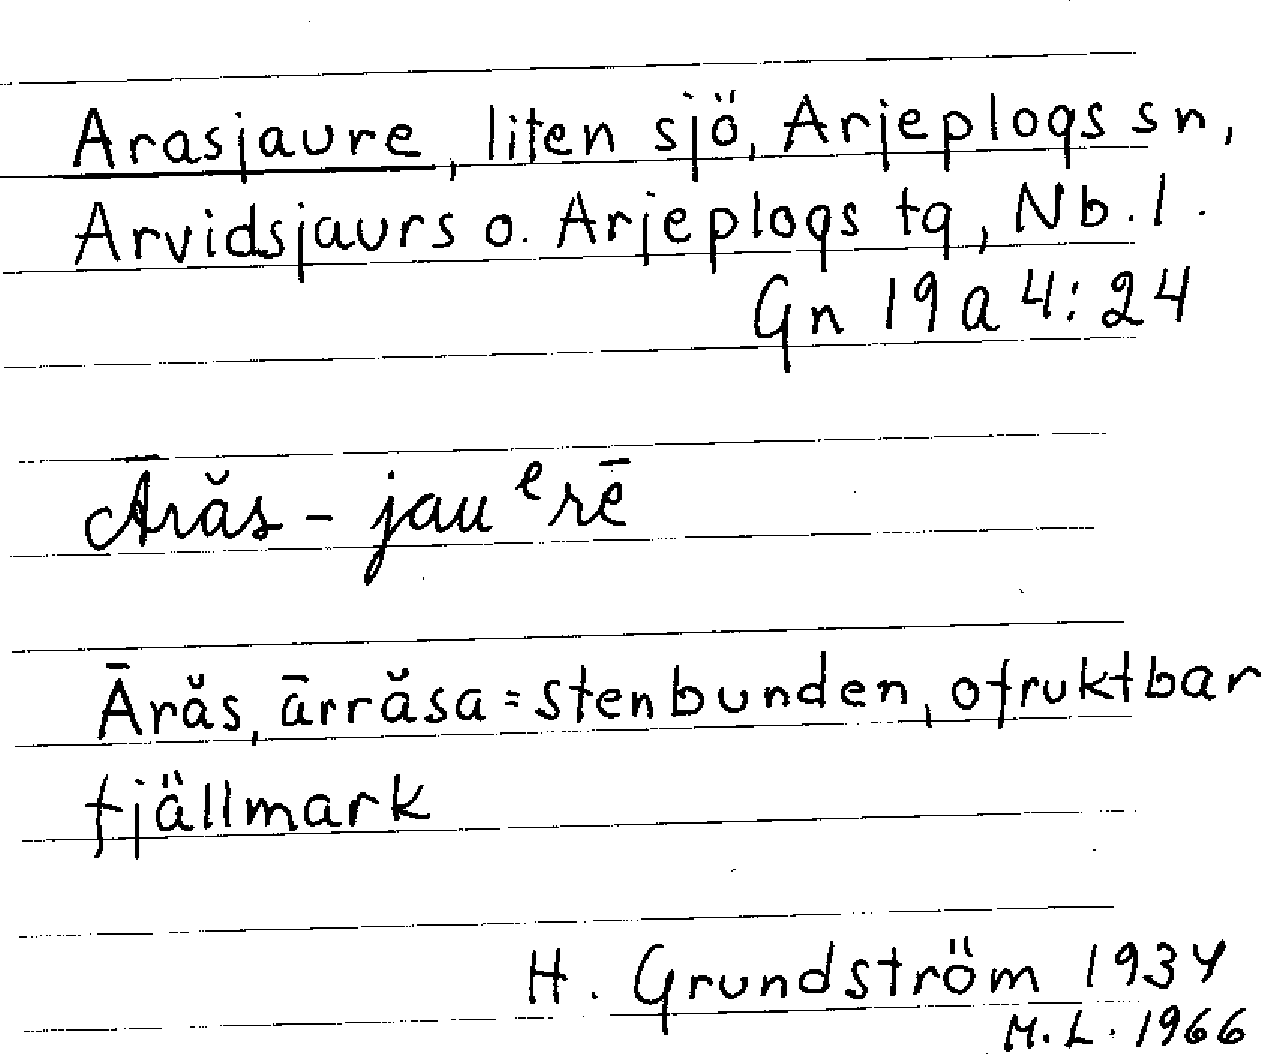 Arasjaure, liten sjö, Arjeplogs sn,
Arvidsjaurs o. Arjeplogs tg, Nb. l.
Gn 19 a 4:24
Ārăs - jauᵉrē
Ārăs, ārrăsa = stenbunden, ofruktbar
fjällmark
H. Grundström 1934
M. L. 1966